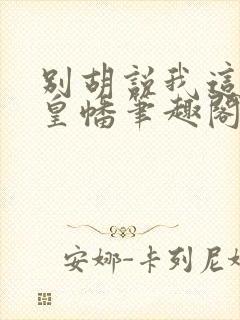 别胡说我这
皇幡笔趣阁
安娜-卡列尼娜